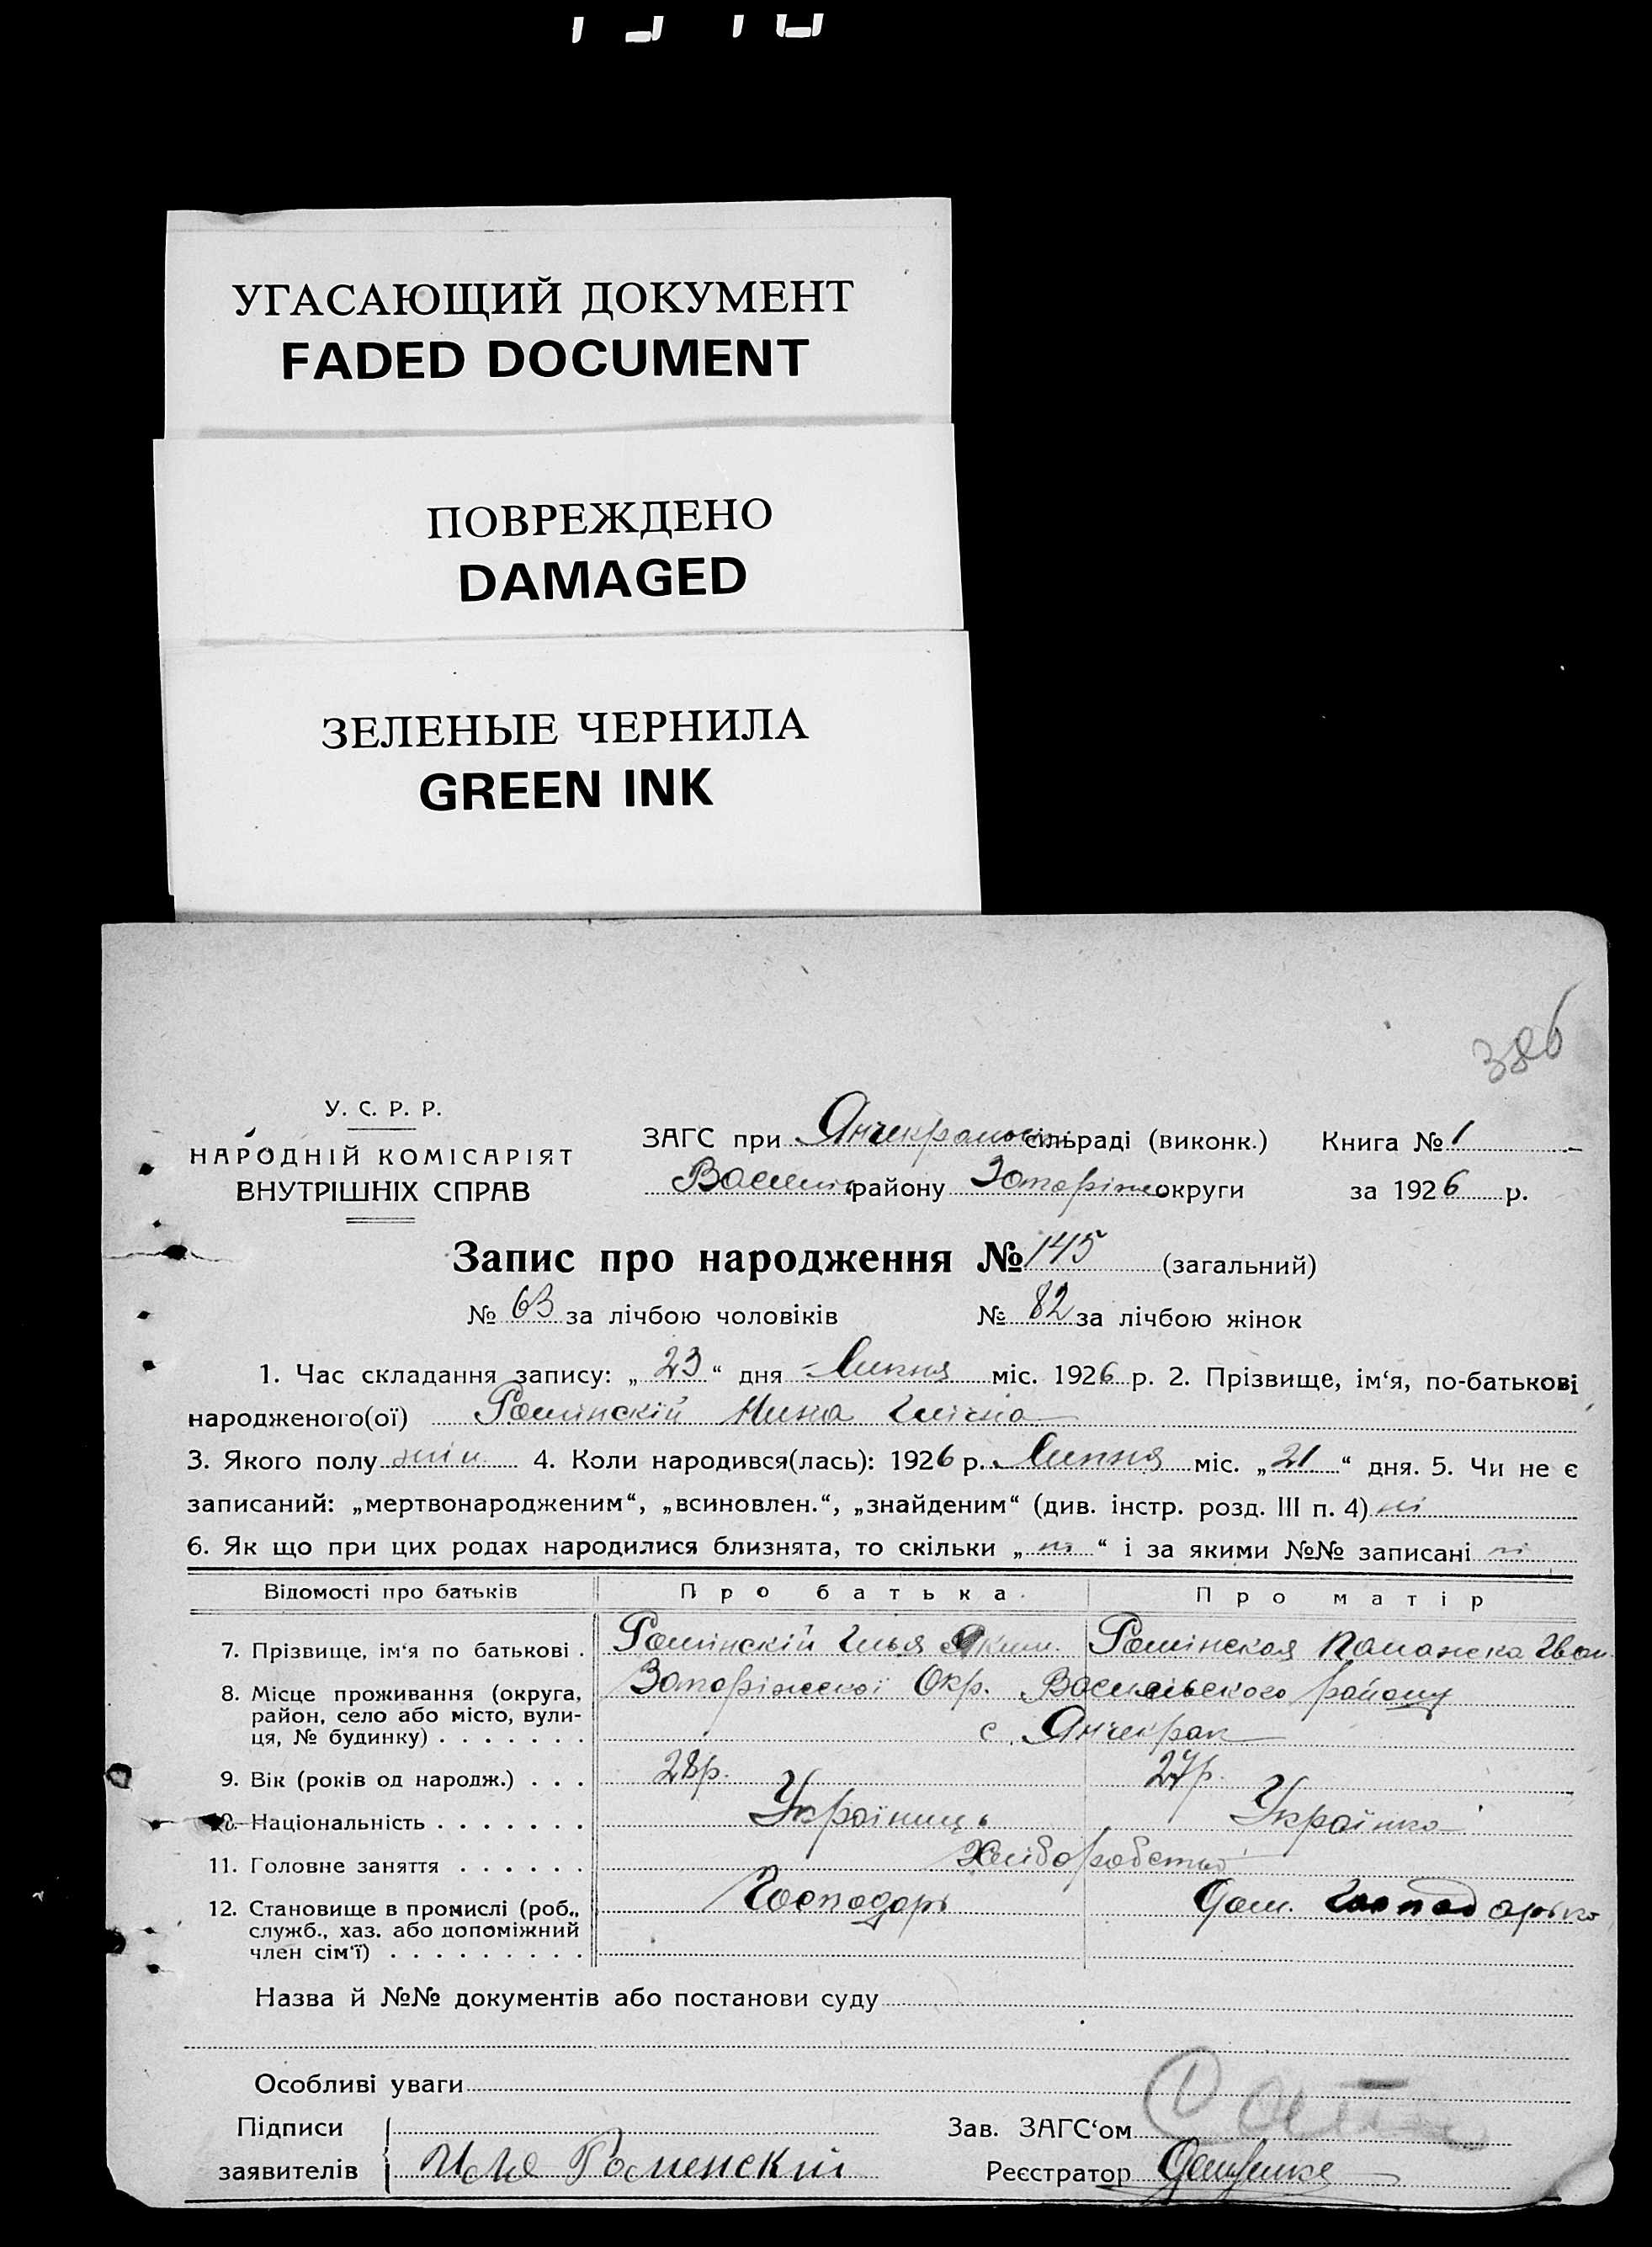 УГАСАЮЩИЙ ДОКУМЕНТ
FADED DOCUMENT
ПОВРЕЖДЕНО
DAMAGED
ЗЕЛЕНЫЕ ЧЕРНИЛА
GREEN INK
386
У. С. Р. Р.
НАРОДНІЙ КОМІСАРІЯТ
ВНУТРІШНІХ СПРАВ
ЗАГС при Янчекраньск сільраді (виконк.) Книга № 1
Василів району Запоріж округи за 1926 р.
Запис про народження № 145 (загальний)
№ 63 за лічбою чоловіків № 82 за лічбою жінок
1. Час складання запису: „23“ дня Липня міс. 1926 р. 2. Прізвище, ім‘я, по-батькові
народженого(ої) Ромінскій Нина Іллічна
3. Якого полу жін. 4. Коли народився(лась): 1926 р. Липня міс. „21“ дня. 5. Чи не є
записаний: „мертвонародженим“, „всиновлен.“, „знайденим“ (див. інстр. розд. III п. 4) ні
6. Як що при цих родах народилися близнята, то скільки „ні“ і за якими №№ записані ні
Відомості про батьків Про батька. Про матір
7. Прізвище, ім‘я по батькові . Ромінскій Илья Яким. Ромінская Паланска Иван.
8. Місце проживання (округа, Запоріжскої Окр. Васильівского району
район, село або місто, вули- с. Янчекрак
ця, № будинку) . . . . . . .
9. Вік (років од народж.) . . . 28р. 27р.
10. Національність . . . . . . . Українць Українка
11. Головне заняття . . . . . . Хліборобство
12. Становище в промислі (роб., Господарь Дом. Господарька
служб., хаз. або допоміжний
член сім‘ї) . . . . . . . . .
Назва й №№ документів або постанови суду
Особливі уваги
Підписи Зав. ЗАГС‘ом
заявителів Илья Роменский Реєстратор